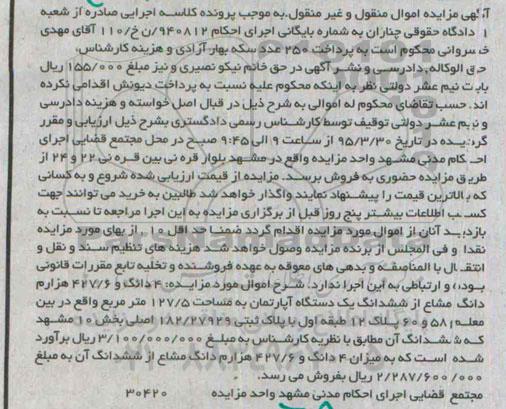 آگهی مزایده اموال منقول و غیر منقول.به موجب پرونده کلاسه اجرایی صادره از شعبه
۱ دادگاه حقوقی چناران به شماره بایگانی اجرای احکام ۹۴۰۸۱۲/ن خ/۱۱۰ آقای مهدی
خسروانی محکوم است به پرداخت ۲۵۰ عدد سکه بهار آزادی و هزینه کارشناس،
حق الوکاله، دادرسی و نشر آگهی در حق خانم نیکو نصیری و نیز مبلغ ۱۵۵/۰۰۰ ریال
بابت نیم عشر دولتی نظر به اینکه محکوم علیه نسبت به پرداخت دیونش اقدامی نکرده
اند. حسب تقاضای محکوم له اموالی به شرح ذیل در قبال اصل خواسته و هزینه دادرسی
و نیم عشر دولتی توقیف توسط کارشناس رسمی دادگستری بشرح ذیل ارزیابی و مقرر
گردیده در تاریخ ۹۵/۳/۳۰ از ساعت ۹ الی ۹:۴۵ صبح در محل مجتمع قضایی اجرای
احکام مدنی مشهد واحد مزایده واقع در مشهد بلوار قره نی بین قره نی ۲۲ و ۲۴ از
طریق مزایده حضوری به فروش برسد. مزایده از قیمت ارزیابی شده شروع و به کسانی
که بالاترین قیمت را پیشنهاد نمایند واگذار خواهد شد طالبین به خرید می توانند جهت
کسب اطلاعات بیشتر پنج روز قبل از برگزاری مزایده به این اجرا مراجعه تا نسبت به
بازدید آنان از اموال مورد مزایده اقدام گردد ضمنا حد اقل ۱۰ ٪ از بهای مورد مزایده
نقدا و فی المجلس از برنده مزایده وصول خواهد شد هزینه های تنظیم سند و نقل و
انتقال با المناصفه و بدهی های معوقه به عهده فروشنده و تخلیه تابع مقررات قانونی
بوده و ارتباطی به این اجرا ندارد. شرح اموال مورد مزایده: ۴ دانگ و ۴۲۷/۶ هزارم
دانگ مشاع از ششدانگ یک دستگاه آپارتمان به مساحت ۱۲۷/۵ متر مربع واقع در بین
معلم ۵۸ و ۶۰ پلاک ۱۲ طبقه اول با پلاک ثبتی ۱۸۲/۲۷۹۲۹ اصلی بخش ۱۰ مشهد
که ششدانگ آن مطابق با نظریه کارشناس به مبلغ ۳/۱۰۰/۰۰۰/۰۰۰ ریال برآورد
شده است که به میزان ۴ دانگ و ۴۲۷/۶ هزارم دانگ مشاع از ششدانگ آن به مبلغ
۲/۲۸۷/۶۰۰/۰۰۰ ریال بفروش می رسد.
مجتمع قضایی اجرای احکام مدنی مشهد واحد مزایده ۳۰۴۲۰